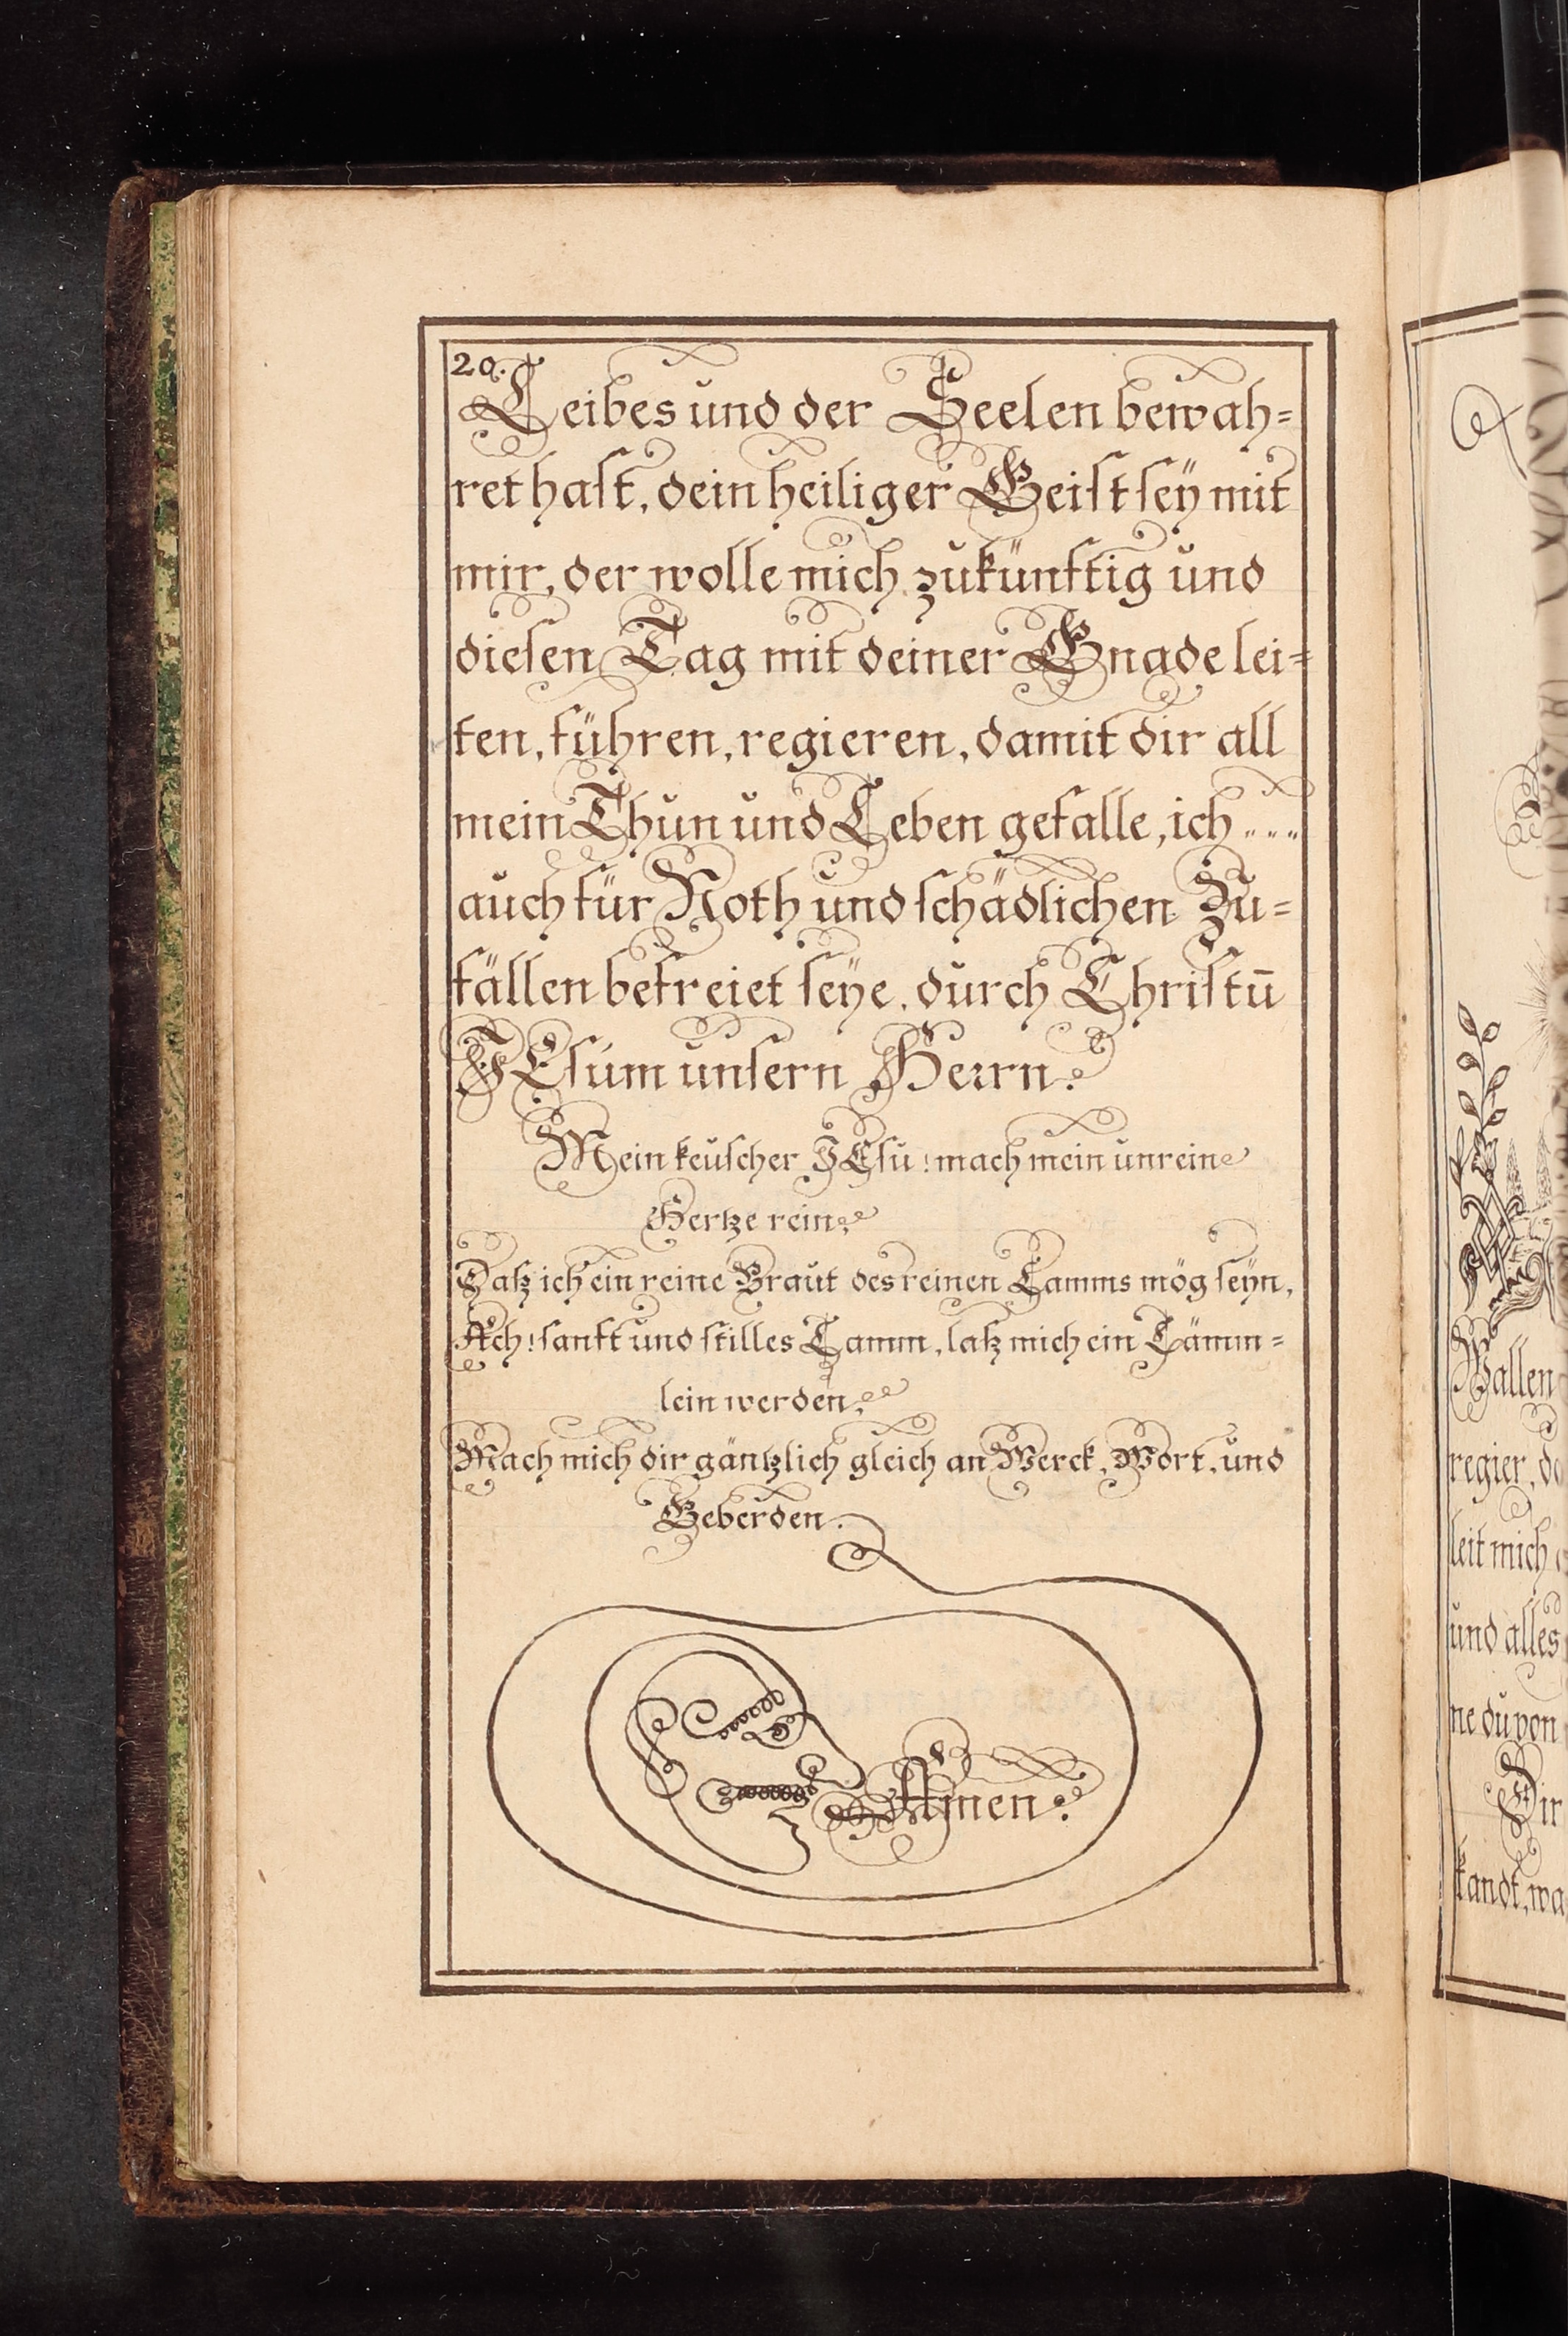 20.
Leibes und der Seelen bewah=
ret haſt, dein heiliger Geiſt ſeÿ mit
mir, der wolle mich zukünftig und
dieſen Tag mit deiner Gnade lei=
ten, führen, regieren, damit dir all
mein Thun und Leben gefalle, ich . . .
auch für Noth und ſchädlichen Zu=
fällen befreiet ſeÿe, durch Chriſtū
JEſum unſern Herrn.
Mein keuſcher JEſu! mach mein unreine
Hertze rein,
Daß ich ein reine Braut des reinen Lamms mög ſeyn,
Ach! ſanft und ſtilles Lamm, laß mich ein Lämm=
lein werden,
Mach mich dir gäntzlich gleich an Werck, Wort, und
Geberden.
Amen.
Wallen
regier, d
leit mich
und alles
ne du von
Dir
kandt, wa